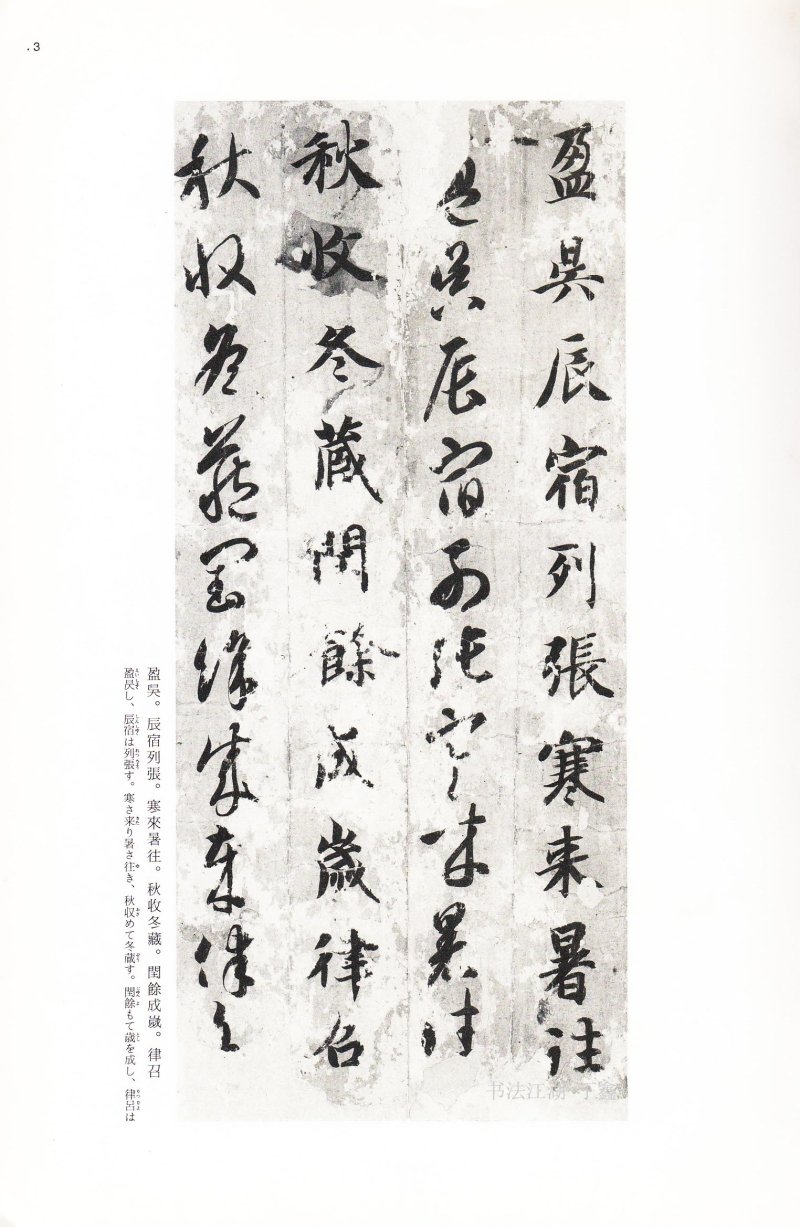 .3
盈昗辰宿列張寒来暑往
盈昗辰宿列張寒来暑往
秋收冬蔵閏餘成歲律召
秋收冬蔵閏餘成歲律召
盈昗。辰宿列張。寒來暑往。秋收冬藏。閏餘成歲。律召
盈昃し、辰宿は列張す。寒さ来り暑さ往き、秋収めて冬蔵す。閏餘もて歳を成し、律呂は
书法江湖